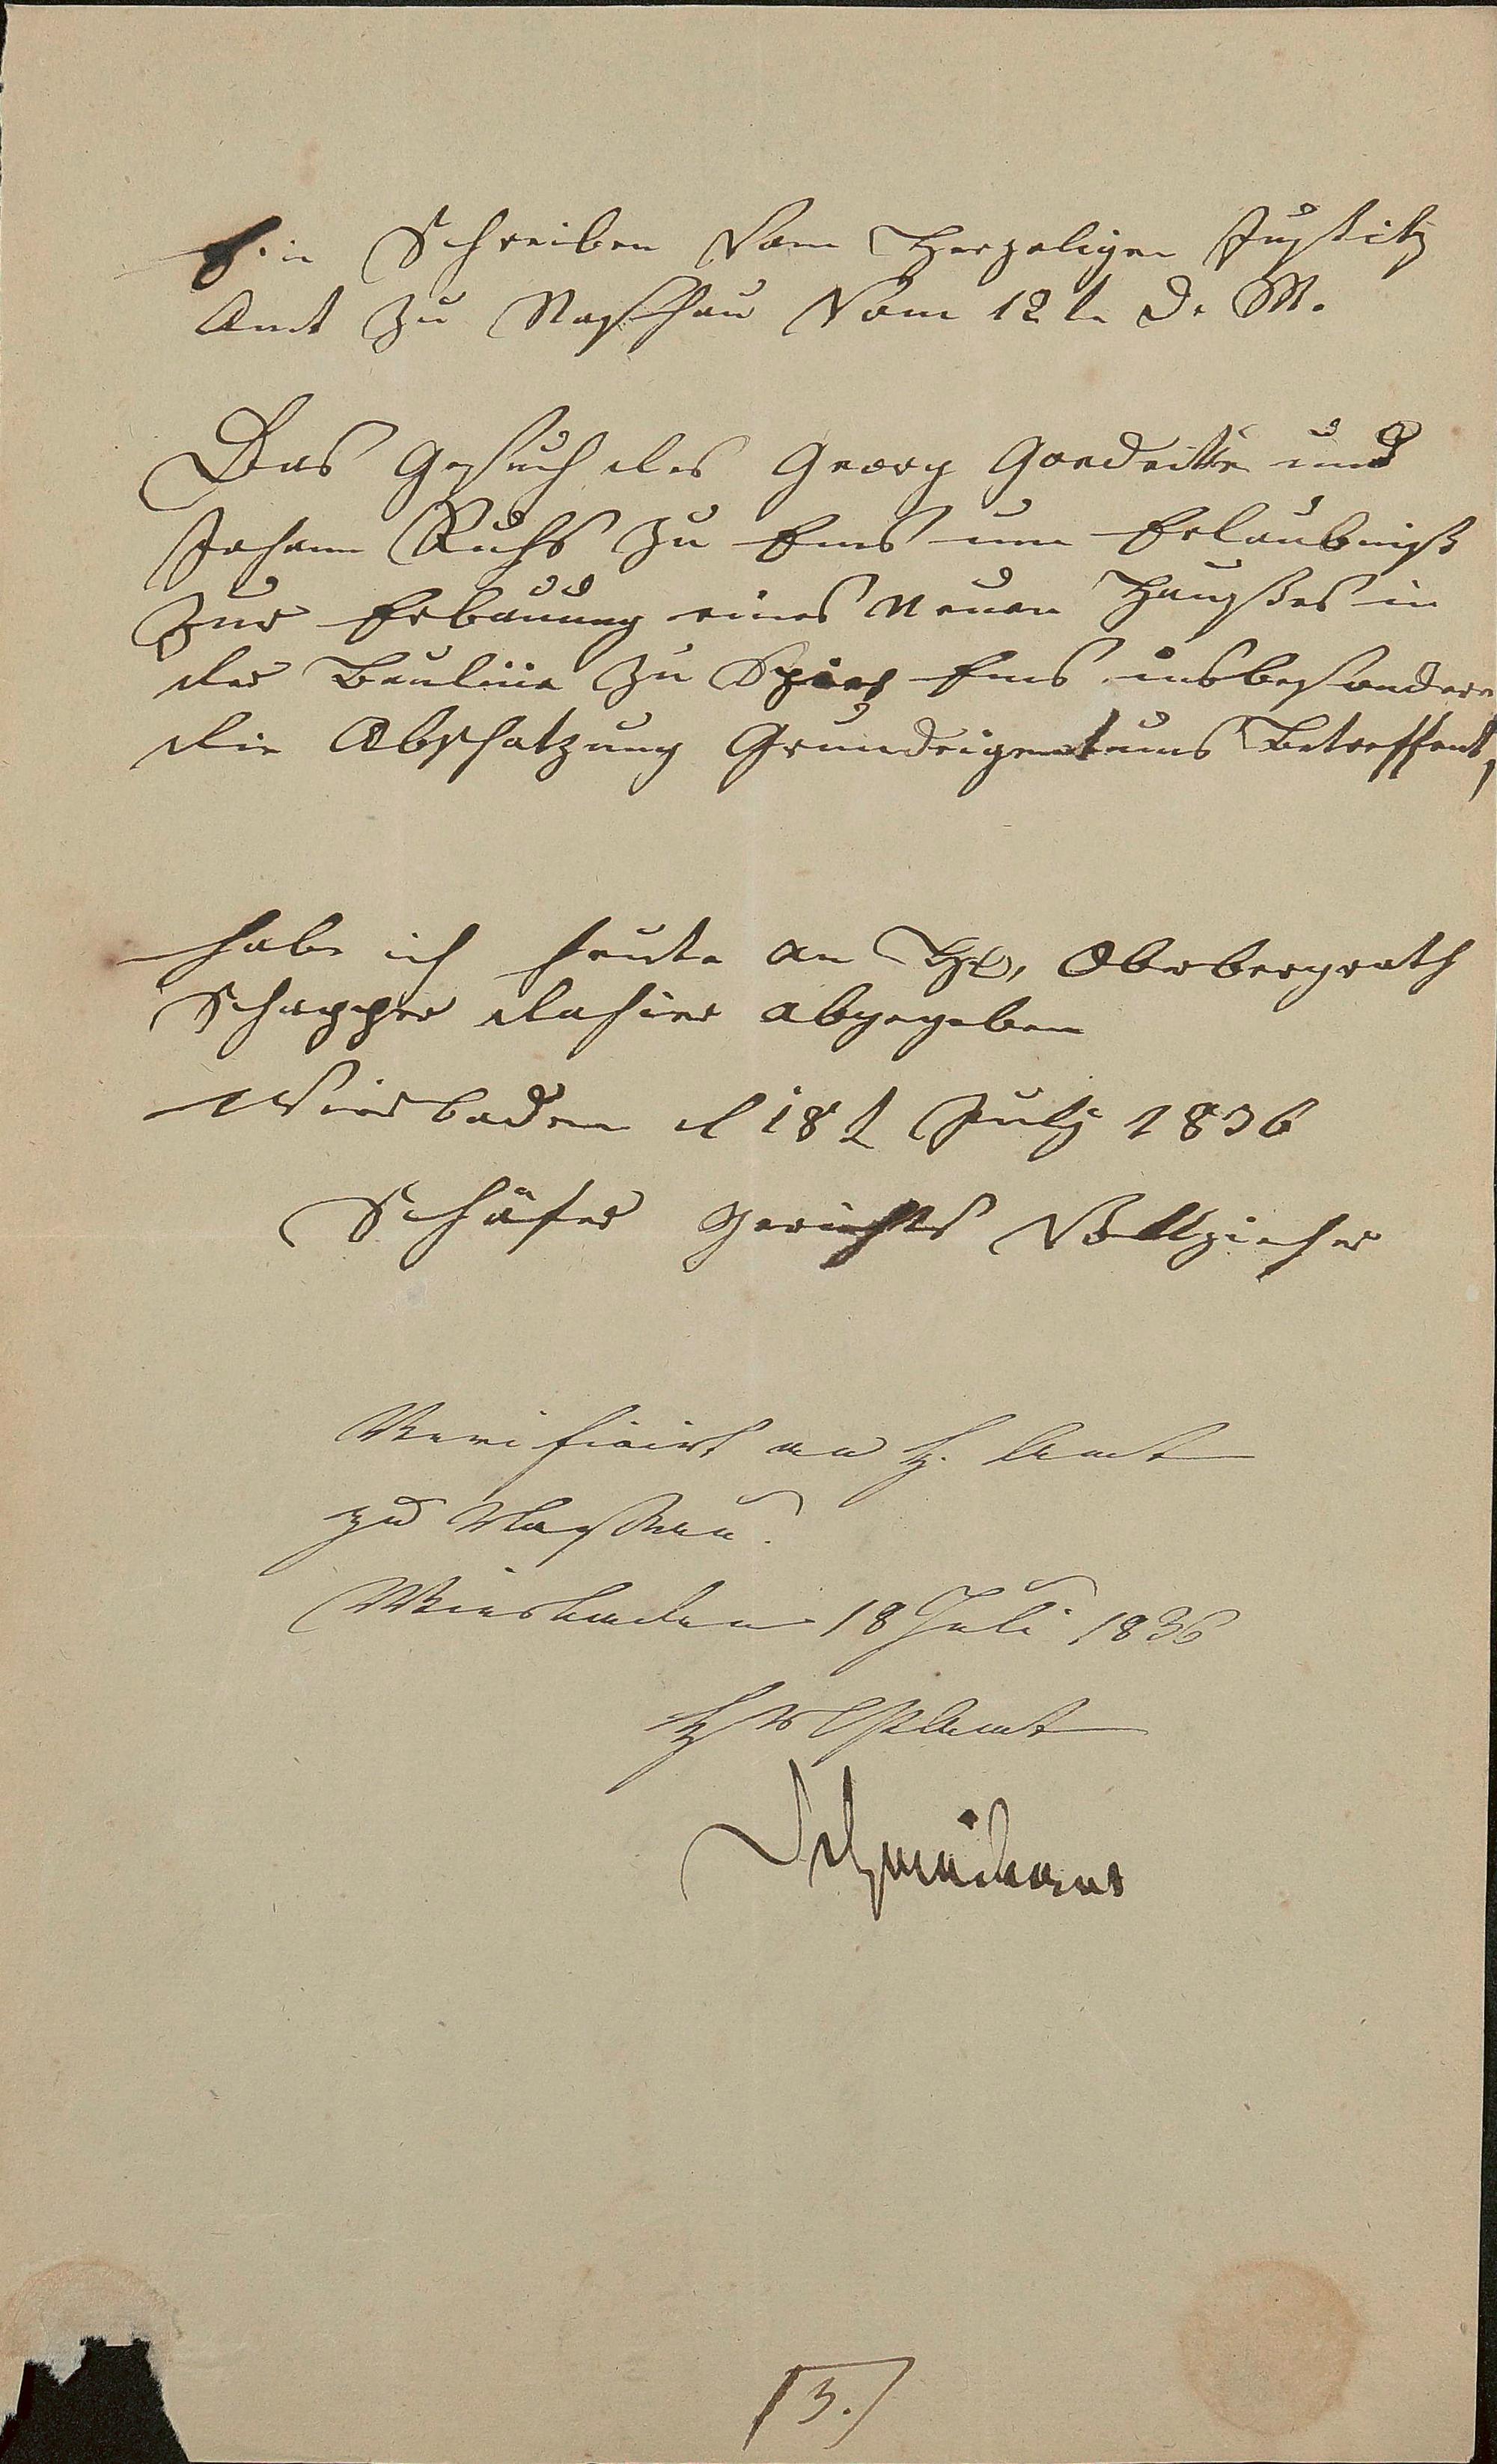 Ein Schreiben Vom Herzoligen Justitz
Amt zu Nassau Vom 12t. d. M.
Das Gesuch des Georg Goedritte und
Johann Ruhs zu Ems um Erlaubniß
zur Erbauung eines neuen Haußes in
der Baulinie zu Ems insbesondere
die Abschatzung Grundeigentums Betreffent,
habe ich heute an H, Oberbergrath
Schapper dahier abgegeben
Wiesbaden d 18t July 1836
Schäfer Gerichts Vollzieher
Verificirt an H. Amt
zu Nassau.
Wiesbaden 18 Juli 1836
Amt
3.